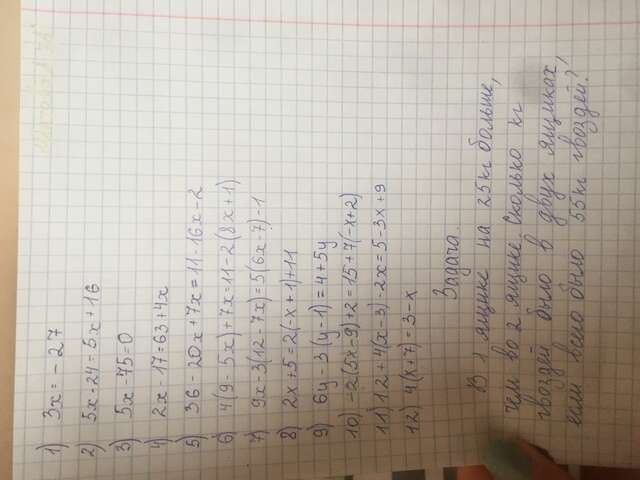 1) 3x = - 27
2) 5x - 24 = 5x + 16
3) 5x - 75 = 0
4) 2x - 17 = 63 + 4x
5) 36 - 20x + 7x = 11 - 16x - 2
6) 4(9 - 5x) + 7x = 11 - 2(8x + 1)
7) 9x - 3(12 - 7x) = 5(6x - 7) - 1
8) 2x + 5 = 2(-x + 1) + 11
9) 6y - 3(y - 1) = 4 + 5y
10) -2(5x - 9) + 2 = 15 + 7(-x + 2)
11) 12 + 4(x - 3) - 2x = 5 - 3x + 9
12) 4(x + 7) = 3 - x
Задача.
В 1 ящике на 25кг больше,
чем во 2 ящике. Сколько кг
гвоздей было в двух ящиках,
если всего было 55кг гвоздей?